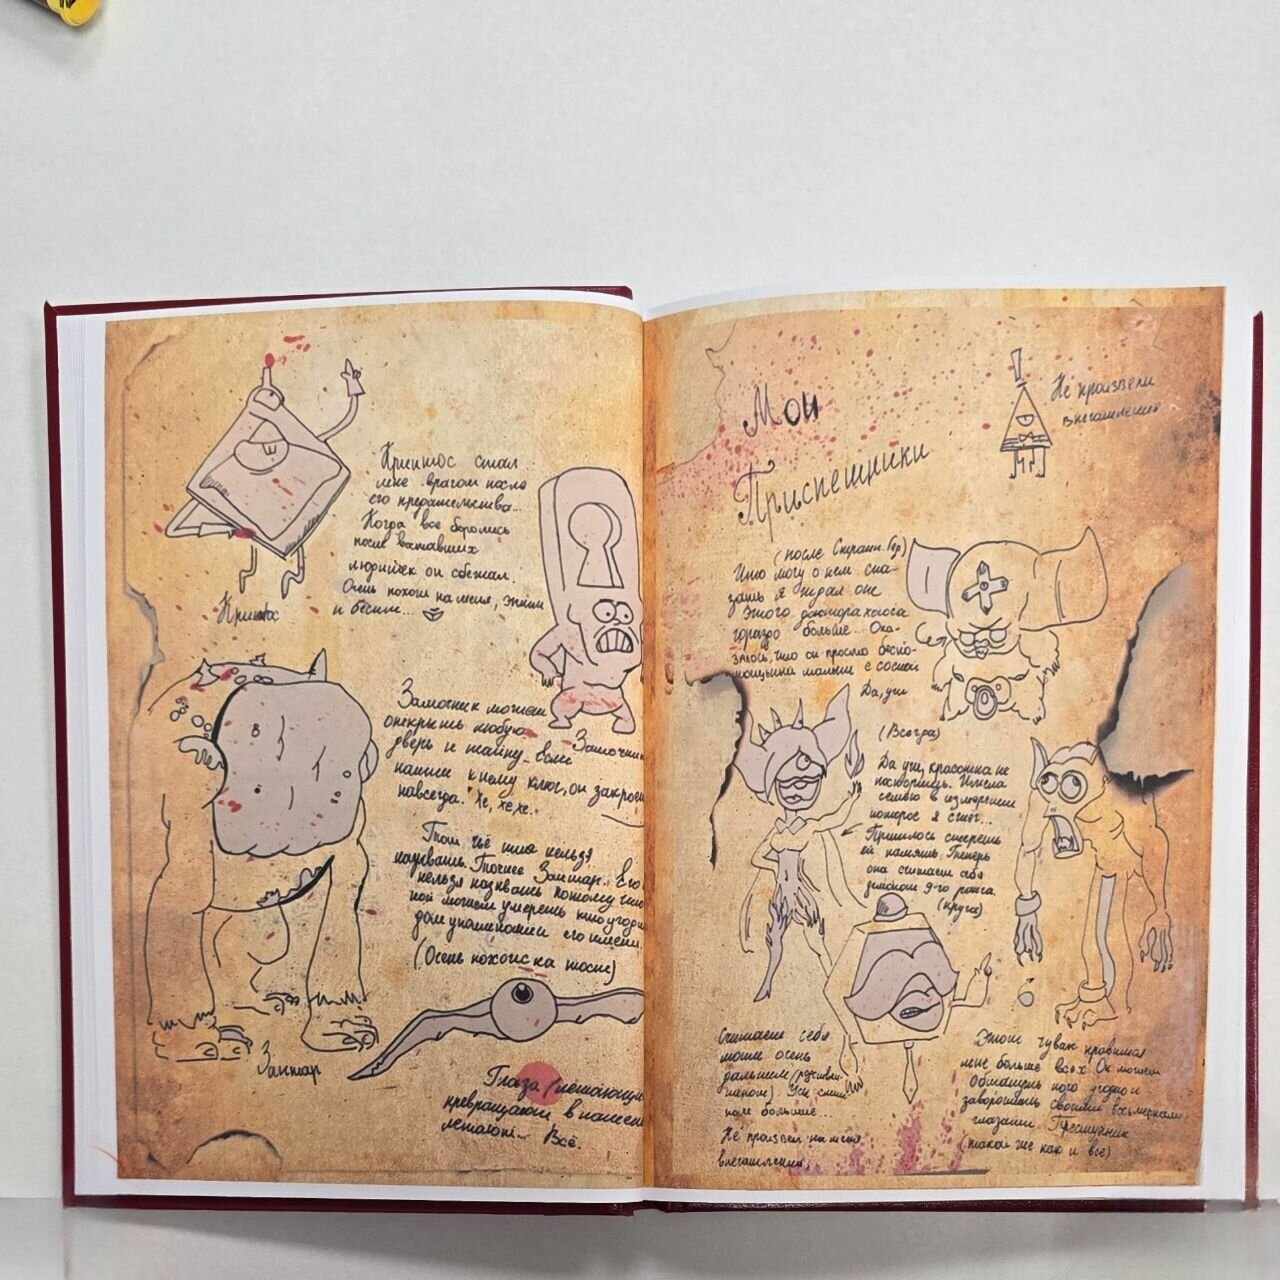 Криптос стал
мне врагом после
его предательства...
Когда все боролись
после восставших
людишек он сбежал.
Очень похож на меня, этим
и бесит...
Криптос
Замочник может
открыть любую
дверь и тайну. Если
найти к нему ключ, он закроет
навсегда." Хе, хе хе.
Замочник
Тот чьё имя нельзя
называть. Точнее Зантар. Его
нельзя называть потому что
той может умереть кто угодно
дом упоминании его имени.
(Очень похоже на тост)
Зантар
Глаза (летающие
превращают в камень
летают... Всё.
Мои
Приспешники
Не произвели
впечатления
(после Странн. Гер)
Что могу о нем ска-
зать я ждал от
этого доктора хаоса
гораздо больше... Ока-
залось, что он просто беспо-
мощный малыш с соской
Да, уж
(Всегда)
Да уж, красотка не
поспоришь. Имела
семью в измерении
которое я сжег...
Пришлось стереть
ей память. Теперь
она считает себя
демоном 9-го ранга
(круга)
Считает себя
моим очень
дальним
поле больше...
Не произвел на меня
впечатления.
Этот чувак нравится
мне больше всех. Он может
обмануть кого угодно и
заворожить своими
глазами. Преступник
(такой же как и все)